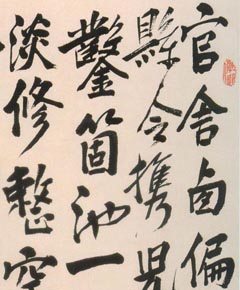 官舍卥偏
縣令攜兒
鑿箇池一
淡修整